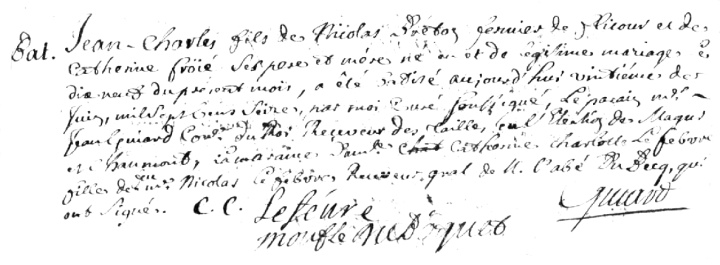 Bat. Jean-Charles fils de Nicolas Prévôt fermier de et de
Catherine froié ses pere et mére né en et de légitime mariage le
dix neuf du present mois, a été batisé aujourd'hui vintiéme de
Juin, mil sept cens seize, par moi Curé soussigné, le parain mre
Jean Guiard du Roi Receveur des tailles, en l'Election de Magni
et Chaumont, la maraine Catherine Charlotte le febvre
fille de mr Nicolas le febvre Receveur gnal de M. l'abé Du Becq, qui
ont signé. C. C. Lefeure Guiard
mouflé